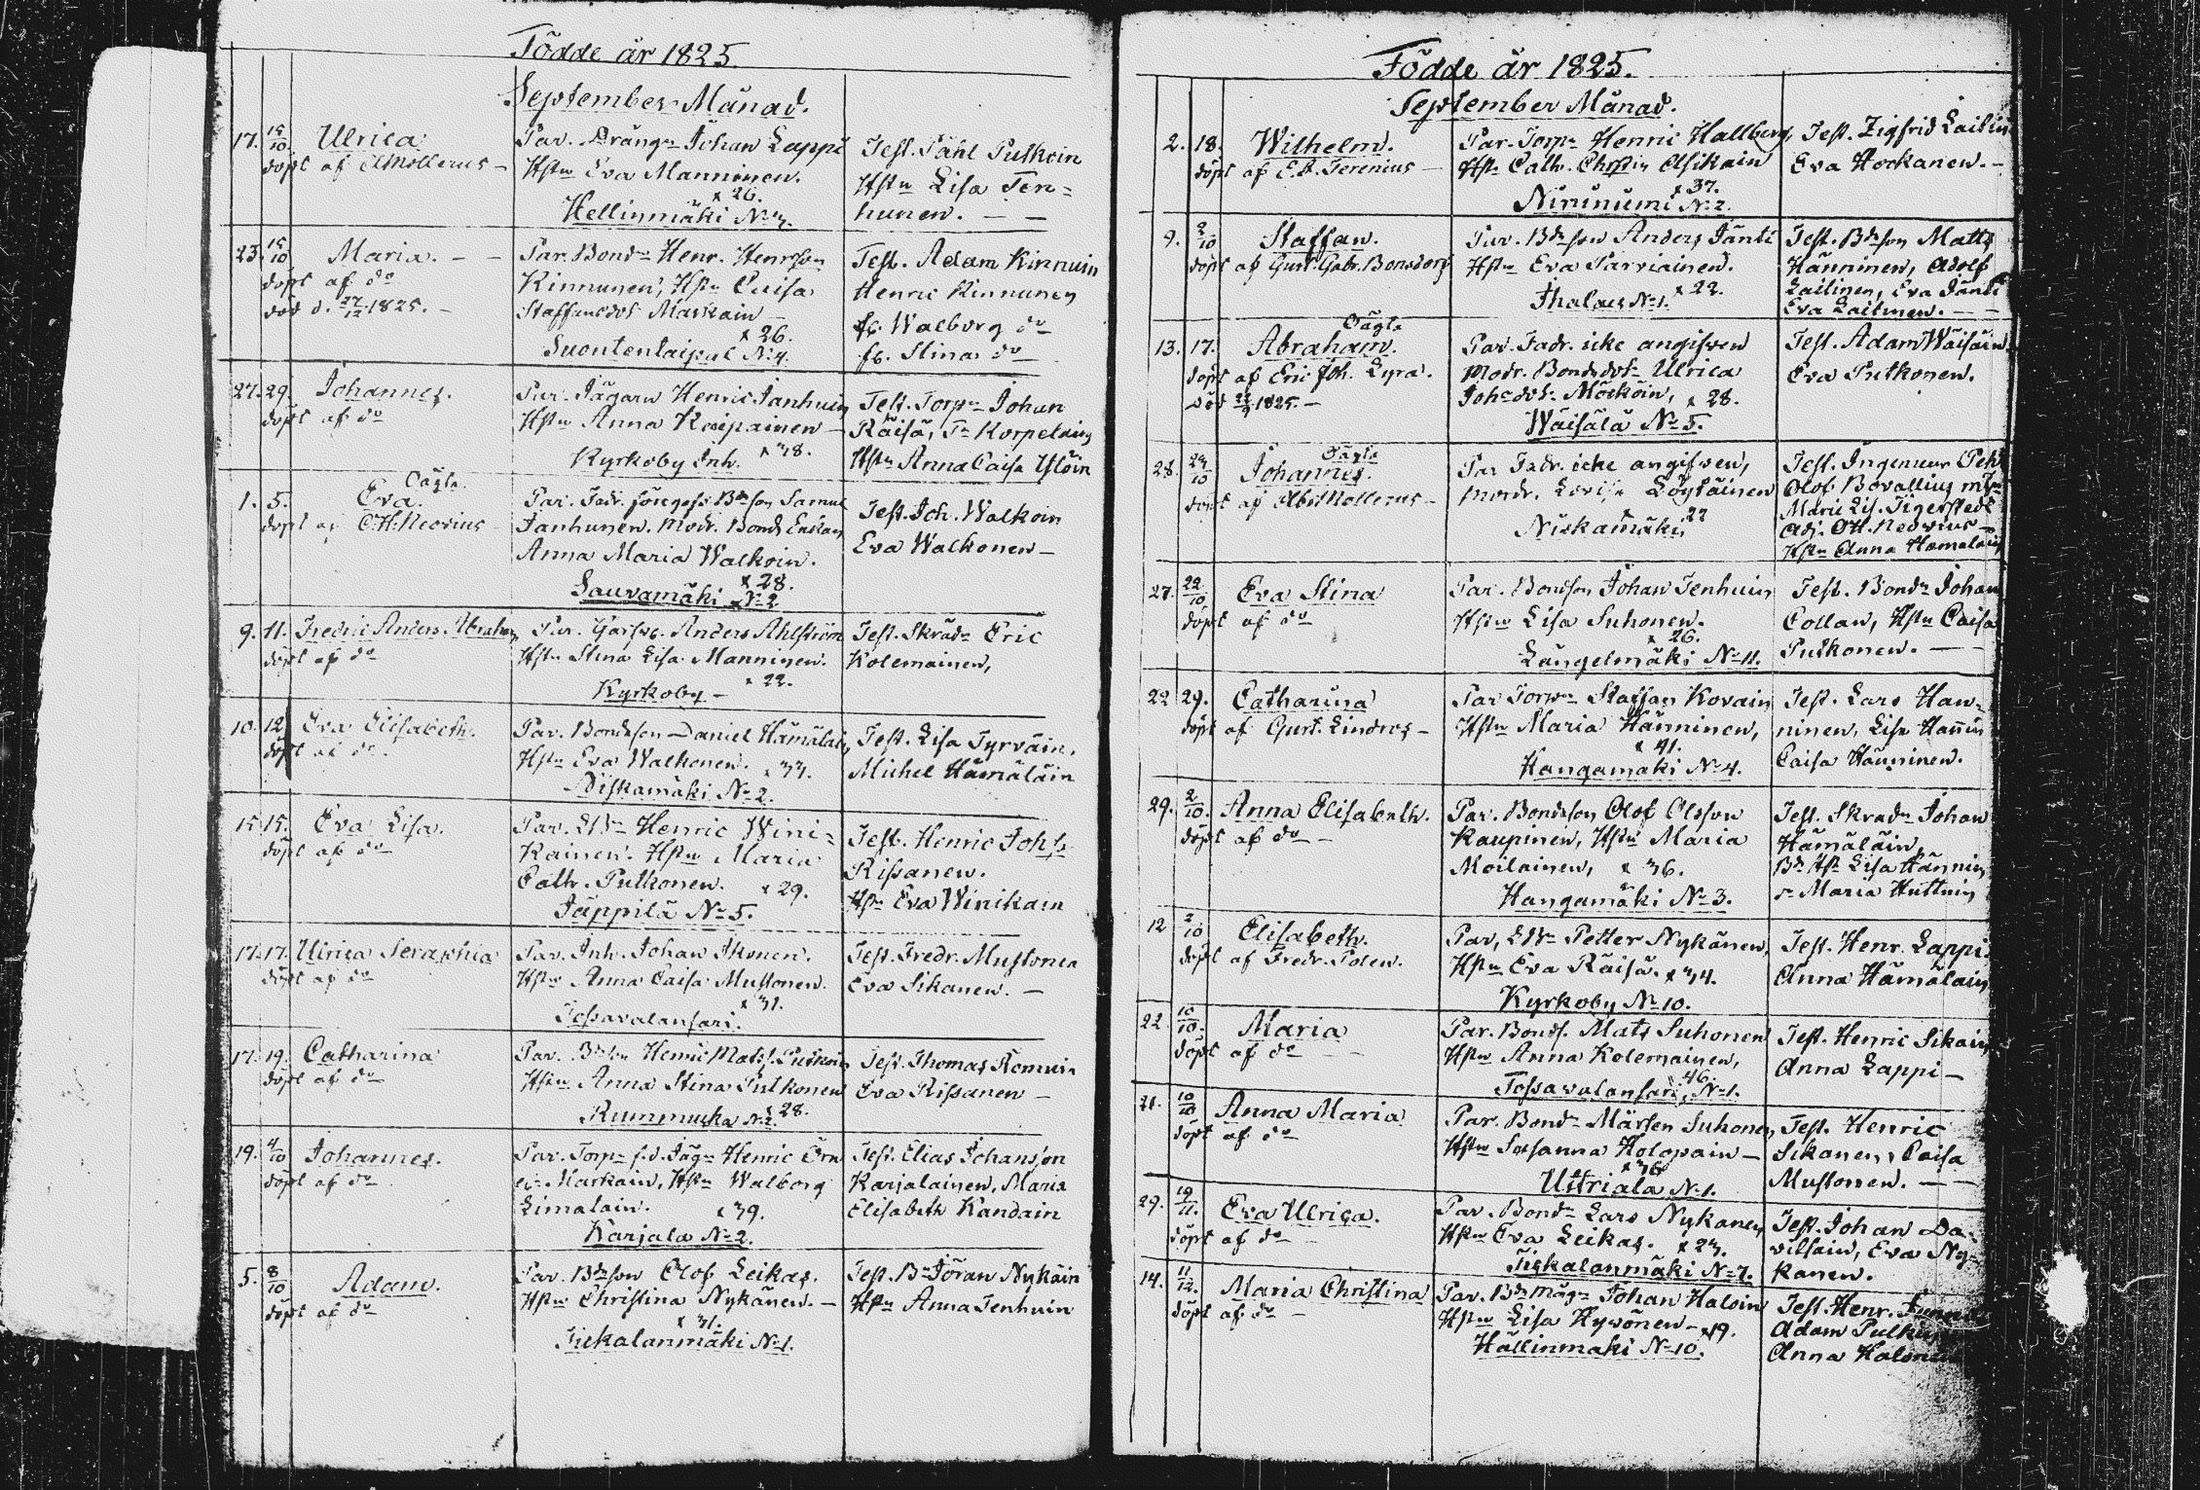 Födde år 1825.
September Månad.
17. 15/10 Ulrica
döpt af A Mollerus -
Par. Dräng:n Johan Lappi
Hstru Eva Manninen.
x 26.
Hellinmäki No 7.
Test. Påhl Putkoin
Hstru Lisa Ten=
hunen. — —
23. 15/10 Maria. - -
döpt af do
död d. 27/12 1825. -
Par. Bond:n Henr. Henrsson
Kinnunen, Hstru Caisa
Staffansdot. Markain -
x 26.
Suontentaipal No 4.
Test. Adam Kinnuin
Henric Kinnunen
fl. Walborg do
fl. Stina do
27. 29. Johannes.
döpt af do
Par. Jägarn Henric Janhuin
Hstru Anna Kaipainen -
x 38.
Kyrkoby Inh.
Test. Torp:n Johan
Räisä, Korpelain
Hstru Anna Caisa
1. 5. Oägta
Eva.
döpt af C.H. Neovius
Par. Fadr. föregifv. Bdeson Samuel
Janhunen. Modr. Bonde Enkan
Anna Maria Walkoin.
x 28.
Sauvamäki No 2
Test. Joh. Walkoin
Eva Walkonen -
9. 11. Fredric Anders Abraham
döpt af do
Par. Anders Ahlström
Hstru Stina Lisa Manninen.
x 22.
Kyrkoby -
Test. Skräd:n Eric
Kolemainen,
10. 12 Eva Elisabeth.
döpt af do
Par. Bondeson Daniel Hämäläin
Hstru Eva Walkonen. x 33.
Niskamäki No 2.
Test. Lisa Tyrväin,
Michel Hämäläin
15. 15. Eva Lisa.
döpt af do
Par. Henric Wini=
kainen. Hstru Maria
Cath. Putkonen. x 29.
Jäppilä No 5.
Test. Henric Joh:s
Rissanen.
Hstru Eva Winikain
17. 17. Ulrica Seraphia
döpt af do
Par. Inh. Johan Ikonen.
Hstru Anna Caisa Mustonen.
x 31.
Tossavalansari.
Test. Fredr. Mustonen
Eva Sikanen. -
17. 19. Catharina
döpt af do
Par. Bdeson Henric Mats. Putkoin
Hstru Anna Stina Putkonen
x 28.
Rummukka No 2.
Test. Thomas Romuin
Eva Rissanen -
19. 4/10 Johannes.
döpt af do
Par. Torp:n f.d. Jäg:n Henric Örn
Markain, Hstru Walborg
Limalain. x 39.
Karjala No 2.
Test. Elias Johansson
Karjalainen, Maria
Elisabeth Kandain
5. 8/10 Adam.
döpt af do
Par. Bdeson Olof Leikas.
Hstru Christina Nykänen. -
x 31.
Tiekalanmäki No 1.
Test. Bn Jöran Nykäin
Hstru Anna Tenhuin
Födde år 1825.
September Månad.
2. 18. Wilhelm.
döpt af E.A. Ferenius -
Par. Torp:n Henric Hallberg,
Hstru Cath. Christin Asikain
x 37.
Niriniemi No 2.
Test. Zigfrid Laitin
Eva Hockanen. -
9. 2/10 Staffan.
döpt af Gust. Gabr. Bonsdorf
Par. Bdeson Anders Jänti
Hstru Eva Parviainen.
x 22.
Ihalais No 1.
Test. Bdeson Matts
Hänninen, Adolf
Laitinen, Eva Jänti
Eva Laitinen. - -
13. 17. Oägta
Abraham.
döpt af Eric Joh. Lyra.
död 22/9 1825. -
Par. Fadr. icke angifven
Modr. Bondedotr Ulrica
Johsdotr. Möckoin, x 28.
Wäisälä No 5.
Test. Adam Wäisäin
Eva Putkonen.
28. 24/10 Oägta
Johannes.
döpt af Ab. Mollerus -
Par Fadr. icke angifven,
Modr. Lovisa Löytäinen
x 22
Niskamäki
Test. Ingenieur Petr
Olof Bovallius
Maria Lis. Tigerstedt
Adj. Ott. Neovius -
Hstru Anna Hämäläin
27. 22/10 Eva Stina
döpt af do
Par. Bondson Johan Tenhuin
Hstru Lisa Suhonen.
x 26.
Längelmäki No 11.
Test. Bond:n Johan
Collan, Hstru Caisa
Putkonen. - -
22 29. Catharina
döpt af Gust. Linders -
Par Torp:n Staffan Kovain
Hstru Maria Hänninen,
x 41.
Kangamäki No 4.
Test. Lars Hän=
ninen, Lisa Hännin
Caisa Hänninen.
29. 2/10. Anna Elisabeth.
döpt af do -
Par. Bondeson Olof Olsson
Kaupinen, Hstru Maria
Moilainen, x 36.
Hangamäki No 3.
Test. Skrad:n Johan
Hämäläin,
Bd. Hst. Lisa Hännin
Maria Huttuin
12 2/10 Elisabeth.
döpt af Fredr. Polen.
Par. Petter Nykänen,
Hstru Eva Räisä. x 34.
Kyrkoby No 10.
Test. Henr. Lappi
Anna Hämäläin
22 10/10. Maria
döpt af do -
Par. Bonds. Mats Suhonen
Hstru Anna Kolemainen,
x 46.
Tossavalansari, No 1.
Test. Henric Sikain
Anna Lappi -
21. 10/10 Anna Maria
döpt af do
Par. Bond:n Mårten Suhonen,
Hstru Susanna Holopain -
x 36
Utriala No 1.
Test. Henric
Sikanen, Caisa
Mustonen. - -
29. 19/11. Eva Ulrica.
döpt af do -
Par. Bond:n Lars Nykänen
Hstru Eva Leikas. x 23.
Tiekalanmäki No 7.
Test. Johan Da-
vilsain, Eva Ny=
kanen.
14. 11/12. Maria Christina
döpt af do -
Par. Bdemåg:n Johan Haloin
Hstru Lisa Hyvönen - x 19.
Hällinmäki No 10.
Test. Henr.
Adam Pulkin
Anna Halonen